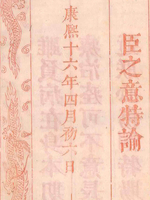 臣之意特諭
康熙十六年四月初六日